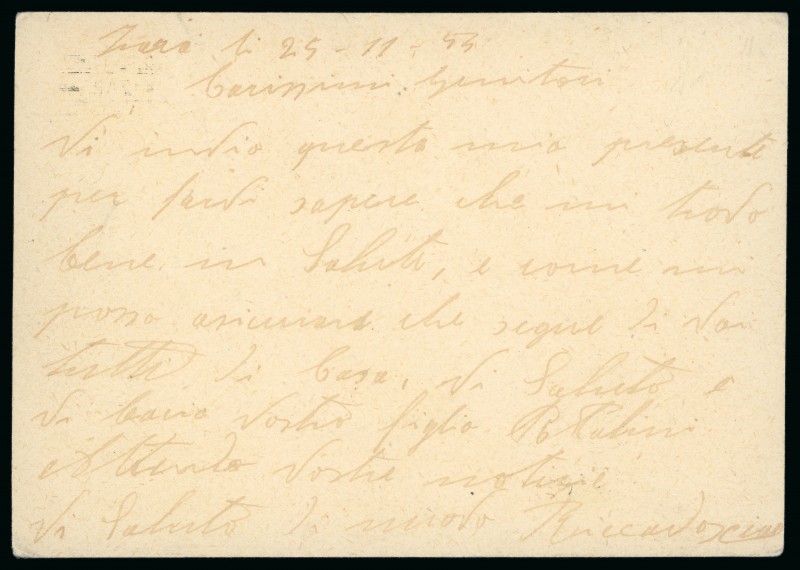 Zara li 25-11-43
Carissimi Genitori
di indio questa mia presente
per fardi sapere che mi trodo
bene in Salute, e come mi
posso asicurare che segue di doi
tutti di Casa, di Saluto e
di bacio dostro figlio
Attendo dostre notizie
di Saluto di nuodo Riccardo ciao